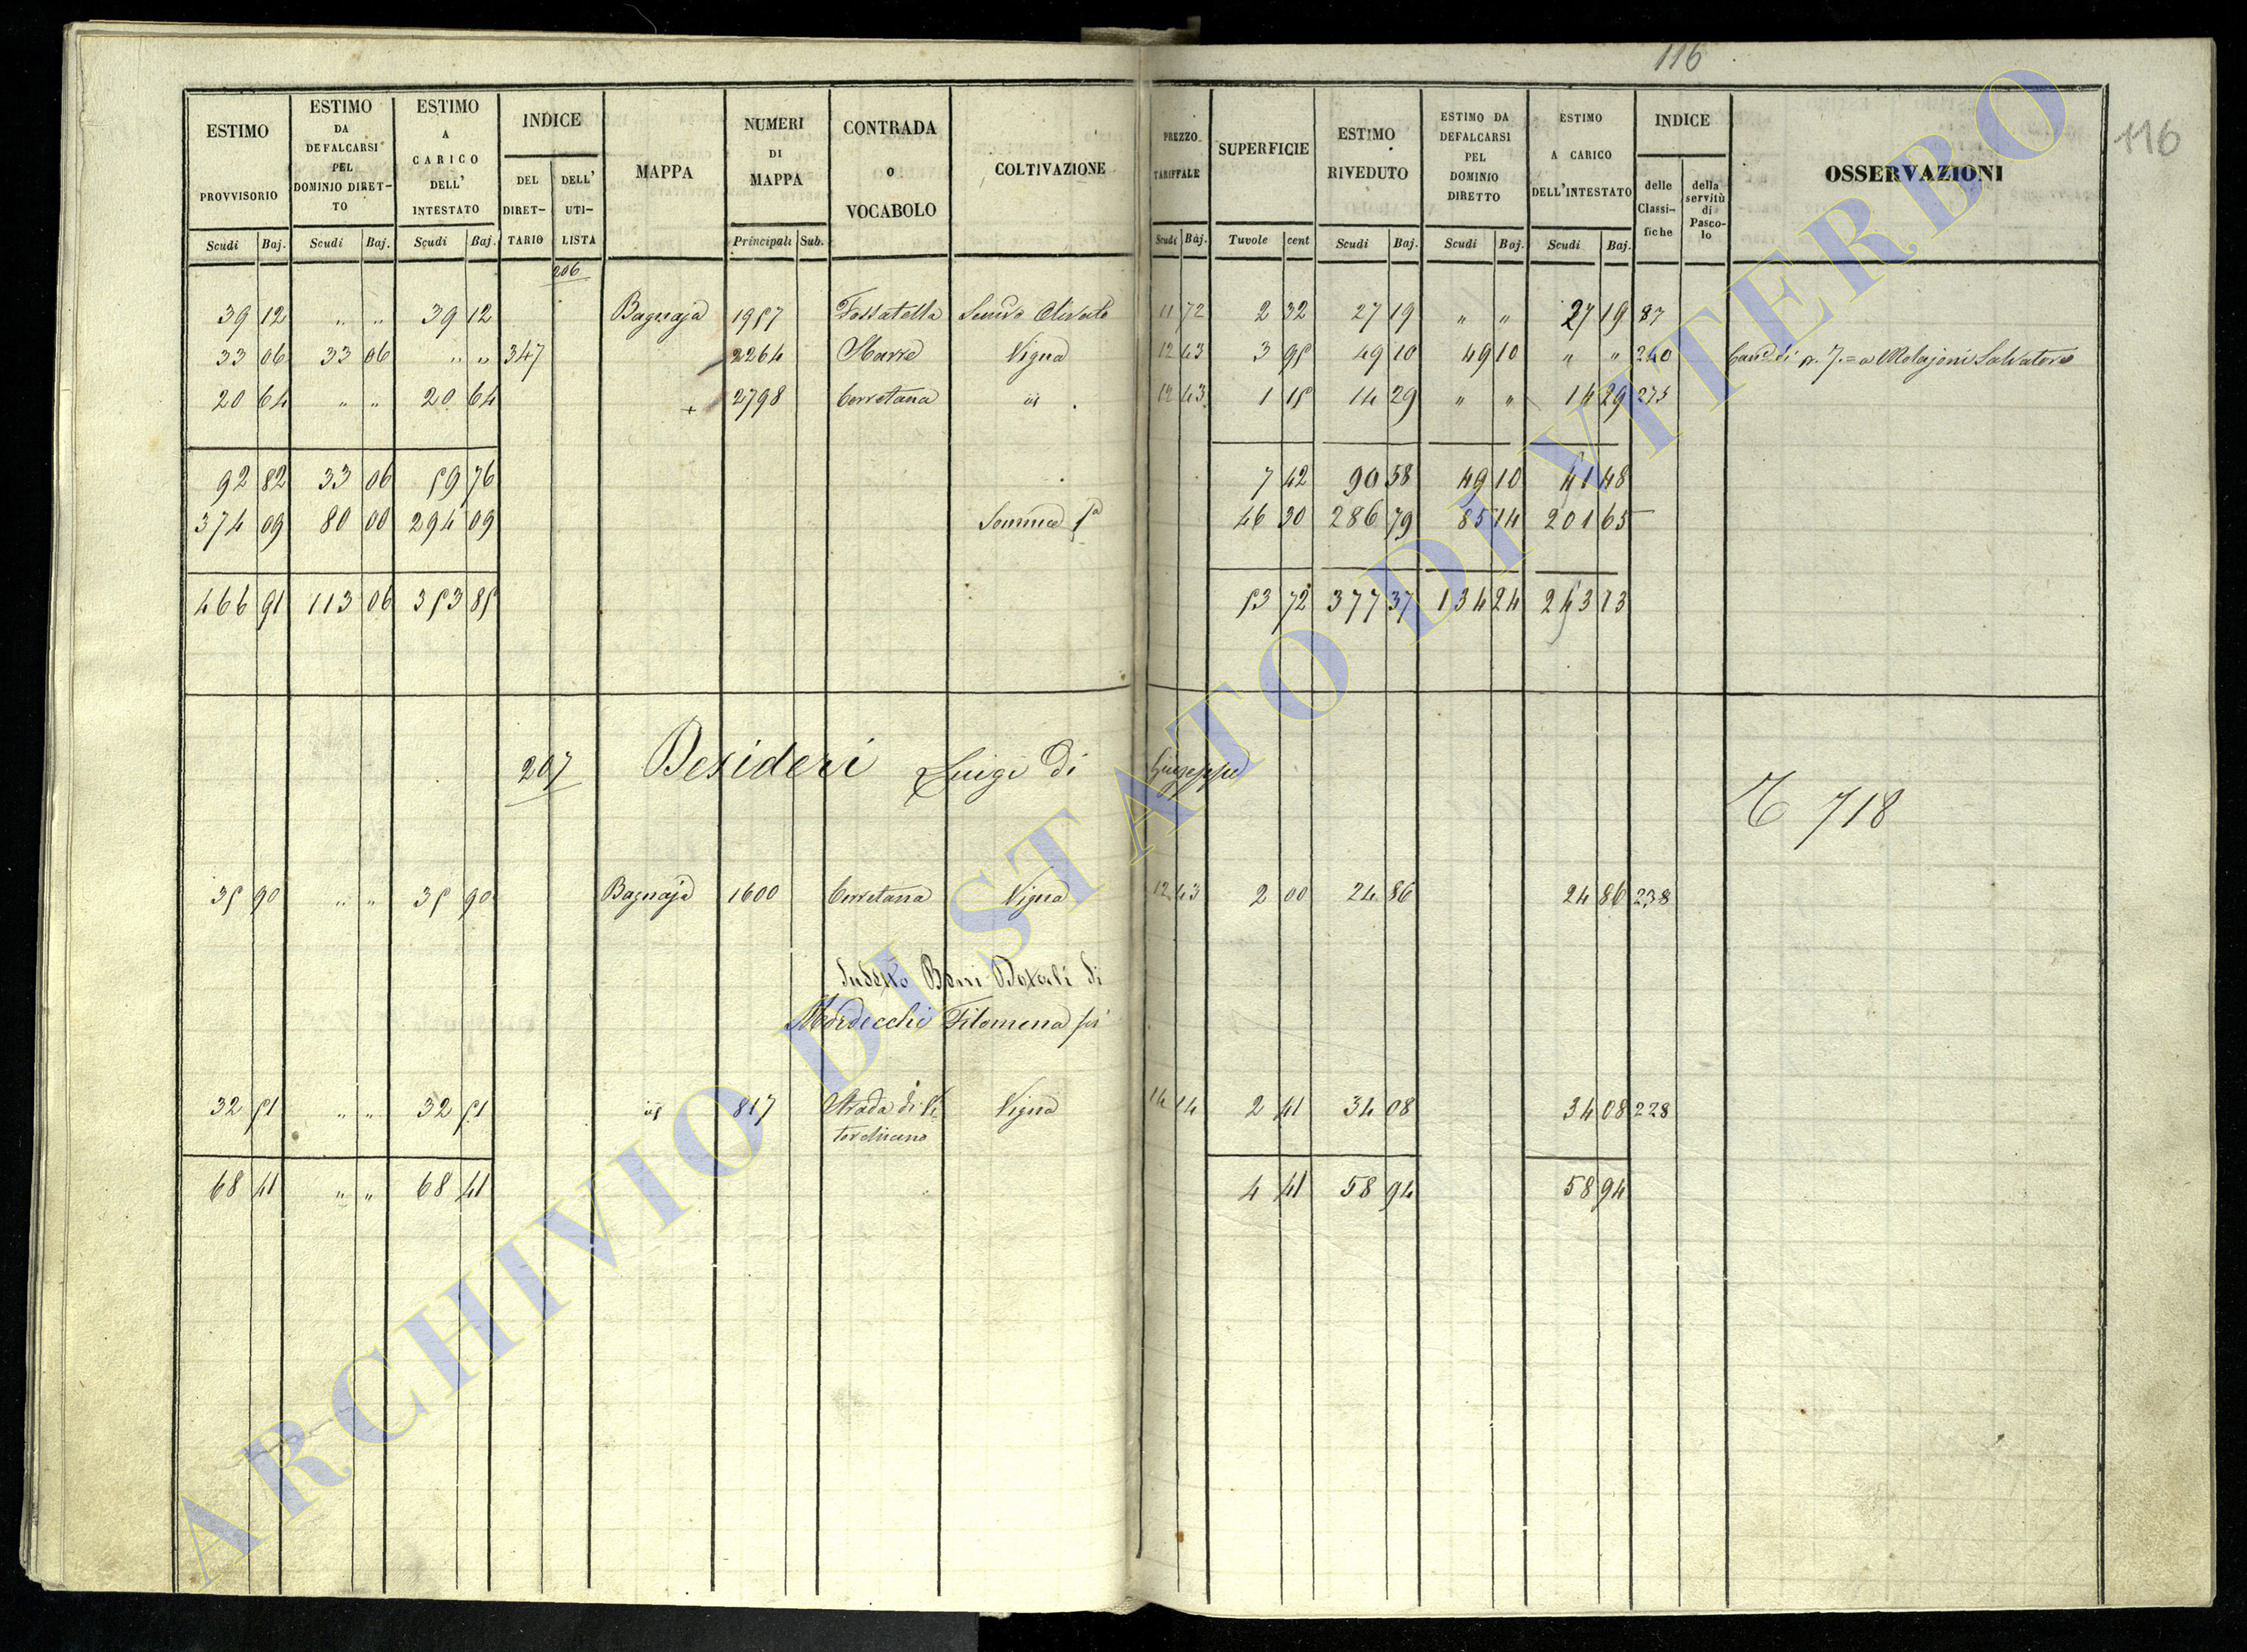 116
116
ESTIMO PROVVISORIO ESTIMO DA DEFALCARSI PEL DOMINIO DIRETTO ESTIMO A CARICO DELL' INTESTATO INDICE DEL DIRETTARIO DELL' UTILISTA MAPPA NUMERI DI MAPPA CONTRADA o VOCABOLO COLTIVAZIONE PREZZO TARIFFALE SUPERFICIE ESTIMO RIVEDUTO ESTIMO DA DEFALCARSI PEL DOMINIO DIRETTO ESTIMO A CARICO DELL'INTESTATO INDICE delle Classifiche della servitù di Pascolo OSSERVAZIONI
Scudi Baj. Scudi Baj. Scudi Baj. Principali Sub. Scudi Baj. Tavole cent Scudi Baj. Scudi Baj. Scudi Baj.
206
39 12 " " 39 12 Bagnaja 1957 Fossatella Olivato 11 72 2 32 27 19 " " 27 19 87
33 06 33 06 " " 347 2264 Vigna 12 43 3 95 49 10 49 10 " " 240 di a Molajoni Salvatore
20 64 " " 20 64 + 2798 Cerretana id 12 43 1 15 14 29 " " 14 29 275
92 82 33 06 59 76 7 42 90 58 49 10 41 48
374 09 80 00 294 09 Somma 46 30 286 79 85 14 201 65
466 91 113 06 353 85 53 72 377 37 134 24 243 13
207 Desideri Luigi di Giuseppe
718
35 90 " " 35 90 Bagnaja 1600 Cerretana Vigna 12 43 2 00 24 86 24 86 238
Sudetto Beni Dotali di
Mordecchi Filomena
32 51 " " 32 51 id 817 Strada di Vi Vigna 14 14 2 41 34 08 34 08 228
torchiano
68 41 " " 68 41 4 41 58 94 58 94
ARCHIVIO DI STATO DI VITERBO